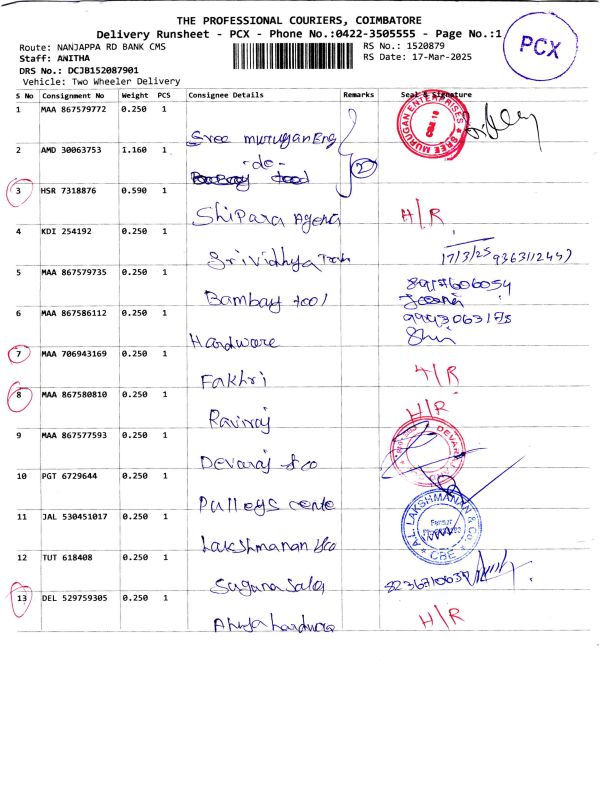 THE PROFESSIONAL COURIERS, COIMBATORE
Delivery Runsheet - PCX - Phone No.:0422-3505555 - Page No.:1
PCX
Route: NANJAPPA RD BANK CMS
RS No.: 1520879
Staff: ANITHA
RS Date: 17-Mar-2025
DRS No.: DCJB152087901
Vehicle: Two Wheeler Delivery
S No Consignment No Weight PCS Consignee Details Remarks Seal & Signature
1 MAA 867579772 0.250 1 Sree murugan Eng
SREE MURUGAN ENTERPRISES
2 AMD 30063753 1.160 1 -do- 2
Bombay tool
3 HSR 7318876 0.590 1 Shipara Agency H/R
4 KDI 254192 0.250 1 Sri Vidhya 17/3/25
5 MAA 867579735 0.250 1 Bambay tool
6 MAA 867586112 0.250 1 Hardware
7 MAA 706943169 0.250 1 Fakhri H/R
8 MAA 867580810 0.250 1 Raviraj H/R
9 MAA 867577593 0.250 1 Devaraj & co
DEVARAJ
10 PGT 6729644 0.250 1 Pulleys cente
11 JAL 530451017 0.250 1 Lakshmanan & co
A.L. LAKSHMANAN & Co. CBE
12 TUT 618408 0.250 1 Suguna Sales
13 DEL 529759305 0.250 1 Ahuja hardware H/R